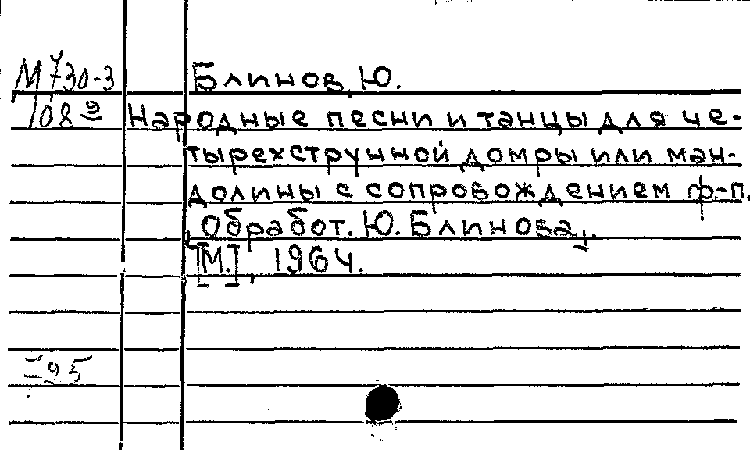 М730-3 Блинов, Ю.
108 9 Народные песни и танцы для че-
тырехструнной домры или ман-
долины с сопровождением ф-п.
[Обработ. Ю. Блинова].
[М.], 1964.
I 95